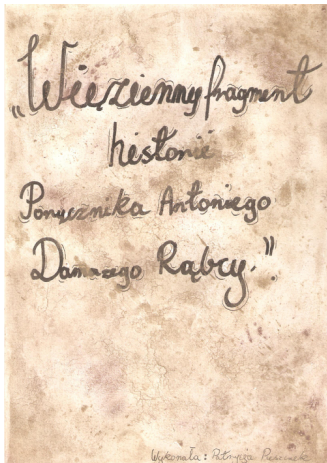 „Więzienny fragment
historii
Porucznika Antoniego
Damazego Rąbcy."
Wykonała: Patrycja